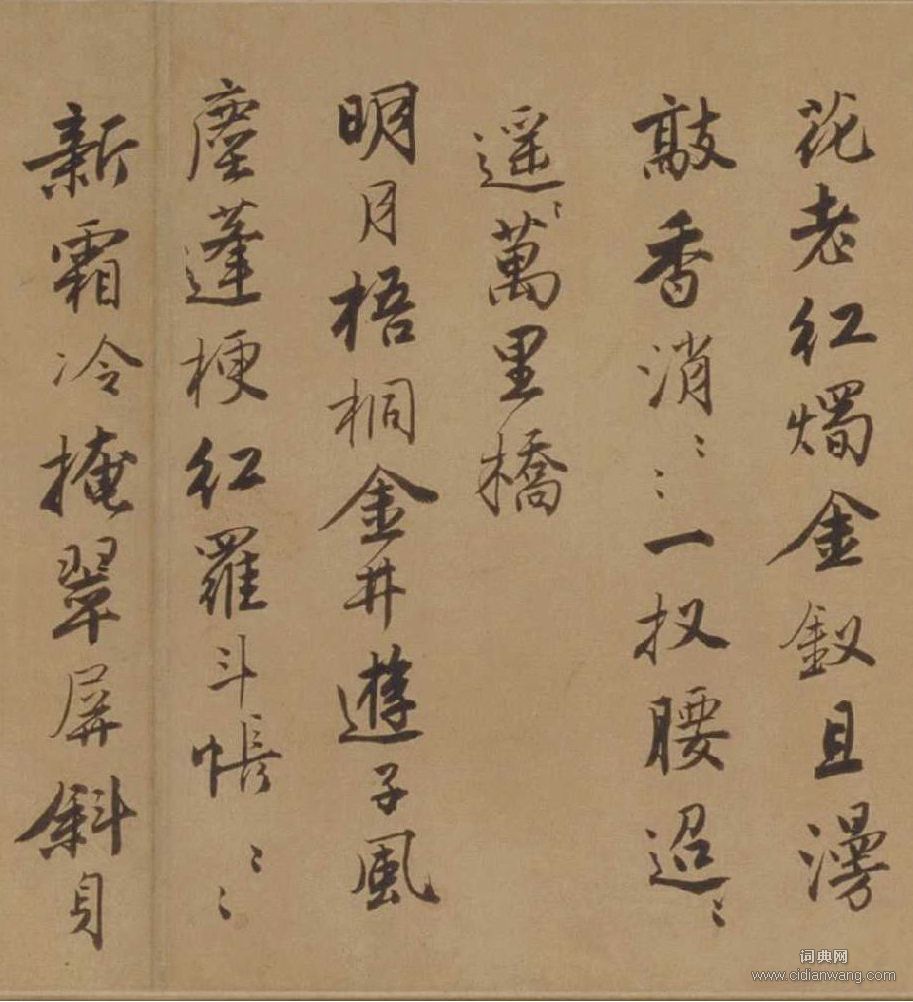 花老紅燭金釵且漫
敲香消〻〻一扠腰迢〻
遥〻萬里橋
明月梧桐金井遊子風
塵蓬梗紅羅斗帳〻〻
新霜冷掩翠屏斜
词典网
www.cidianwang.com